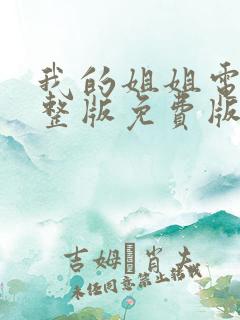 我的姐姐电
整版免费版
吉姆·肖夫
未经同意禁止转载